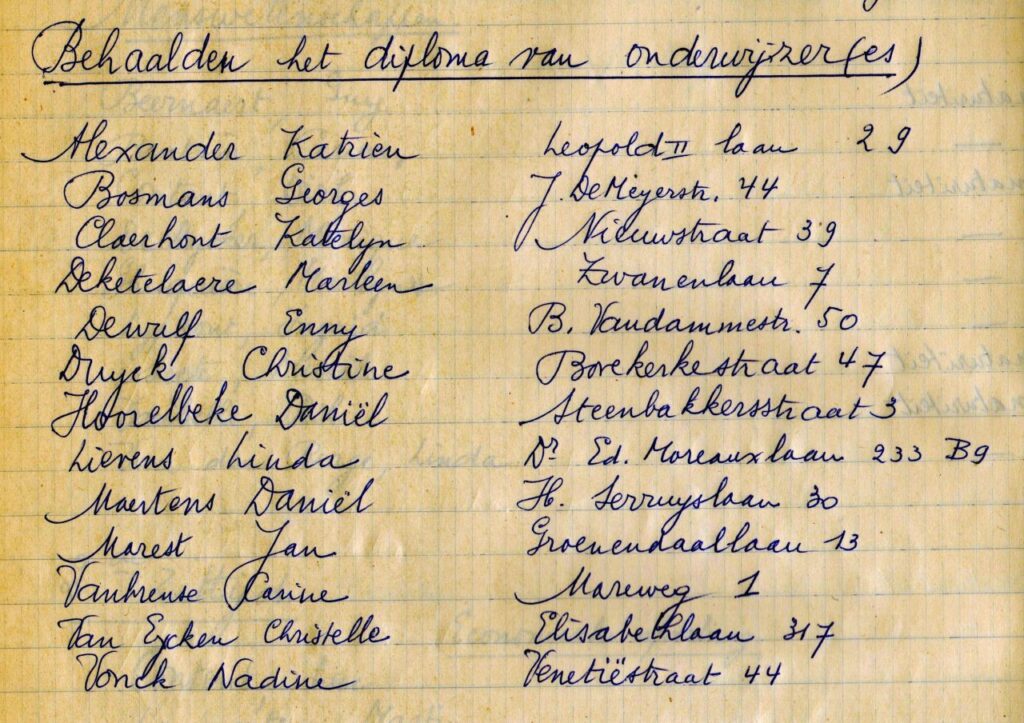 Behaalden het diploma van onderwijzer(es)
Alexander Katrien Leopold II laan 29
Bosmans Georges J. De Meyerstr. 44
Claerhout Katelyn Nieuwstraat 39
Deketelaere Marleen Zwanenlaan 7
Dewulf Enny B. Vandammestr. 50
Druyck Christine Bovekerkestraat 47
Hoorelbeke Daniël Steenbakkersstraat 3
Lievens Linda Dr Ed. Moreauxlaan 233 B9
Maertens Daniël H. Serruyslaan 30
Marest Jan Groenendaallaan 13
Carine Mareweg 1
Van Eycken Christelle Elisabethlaan 317
Vonck Nadine Venetiëstraat 44